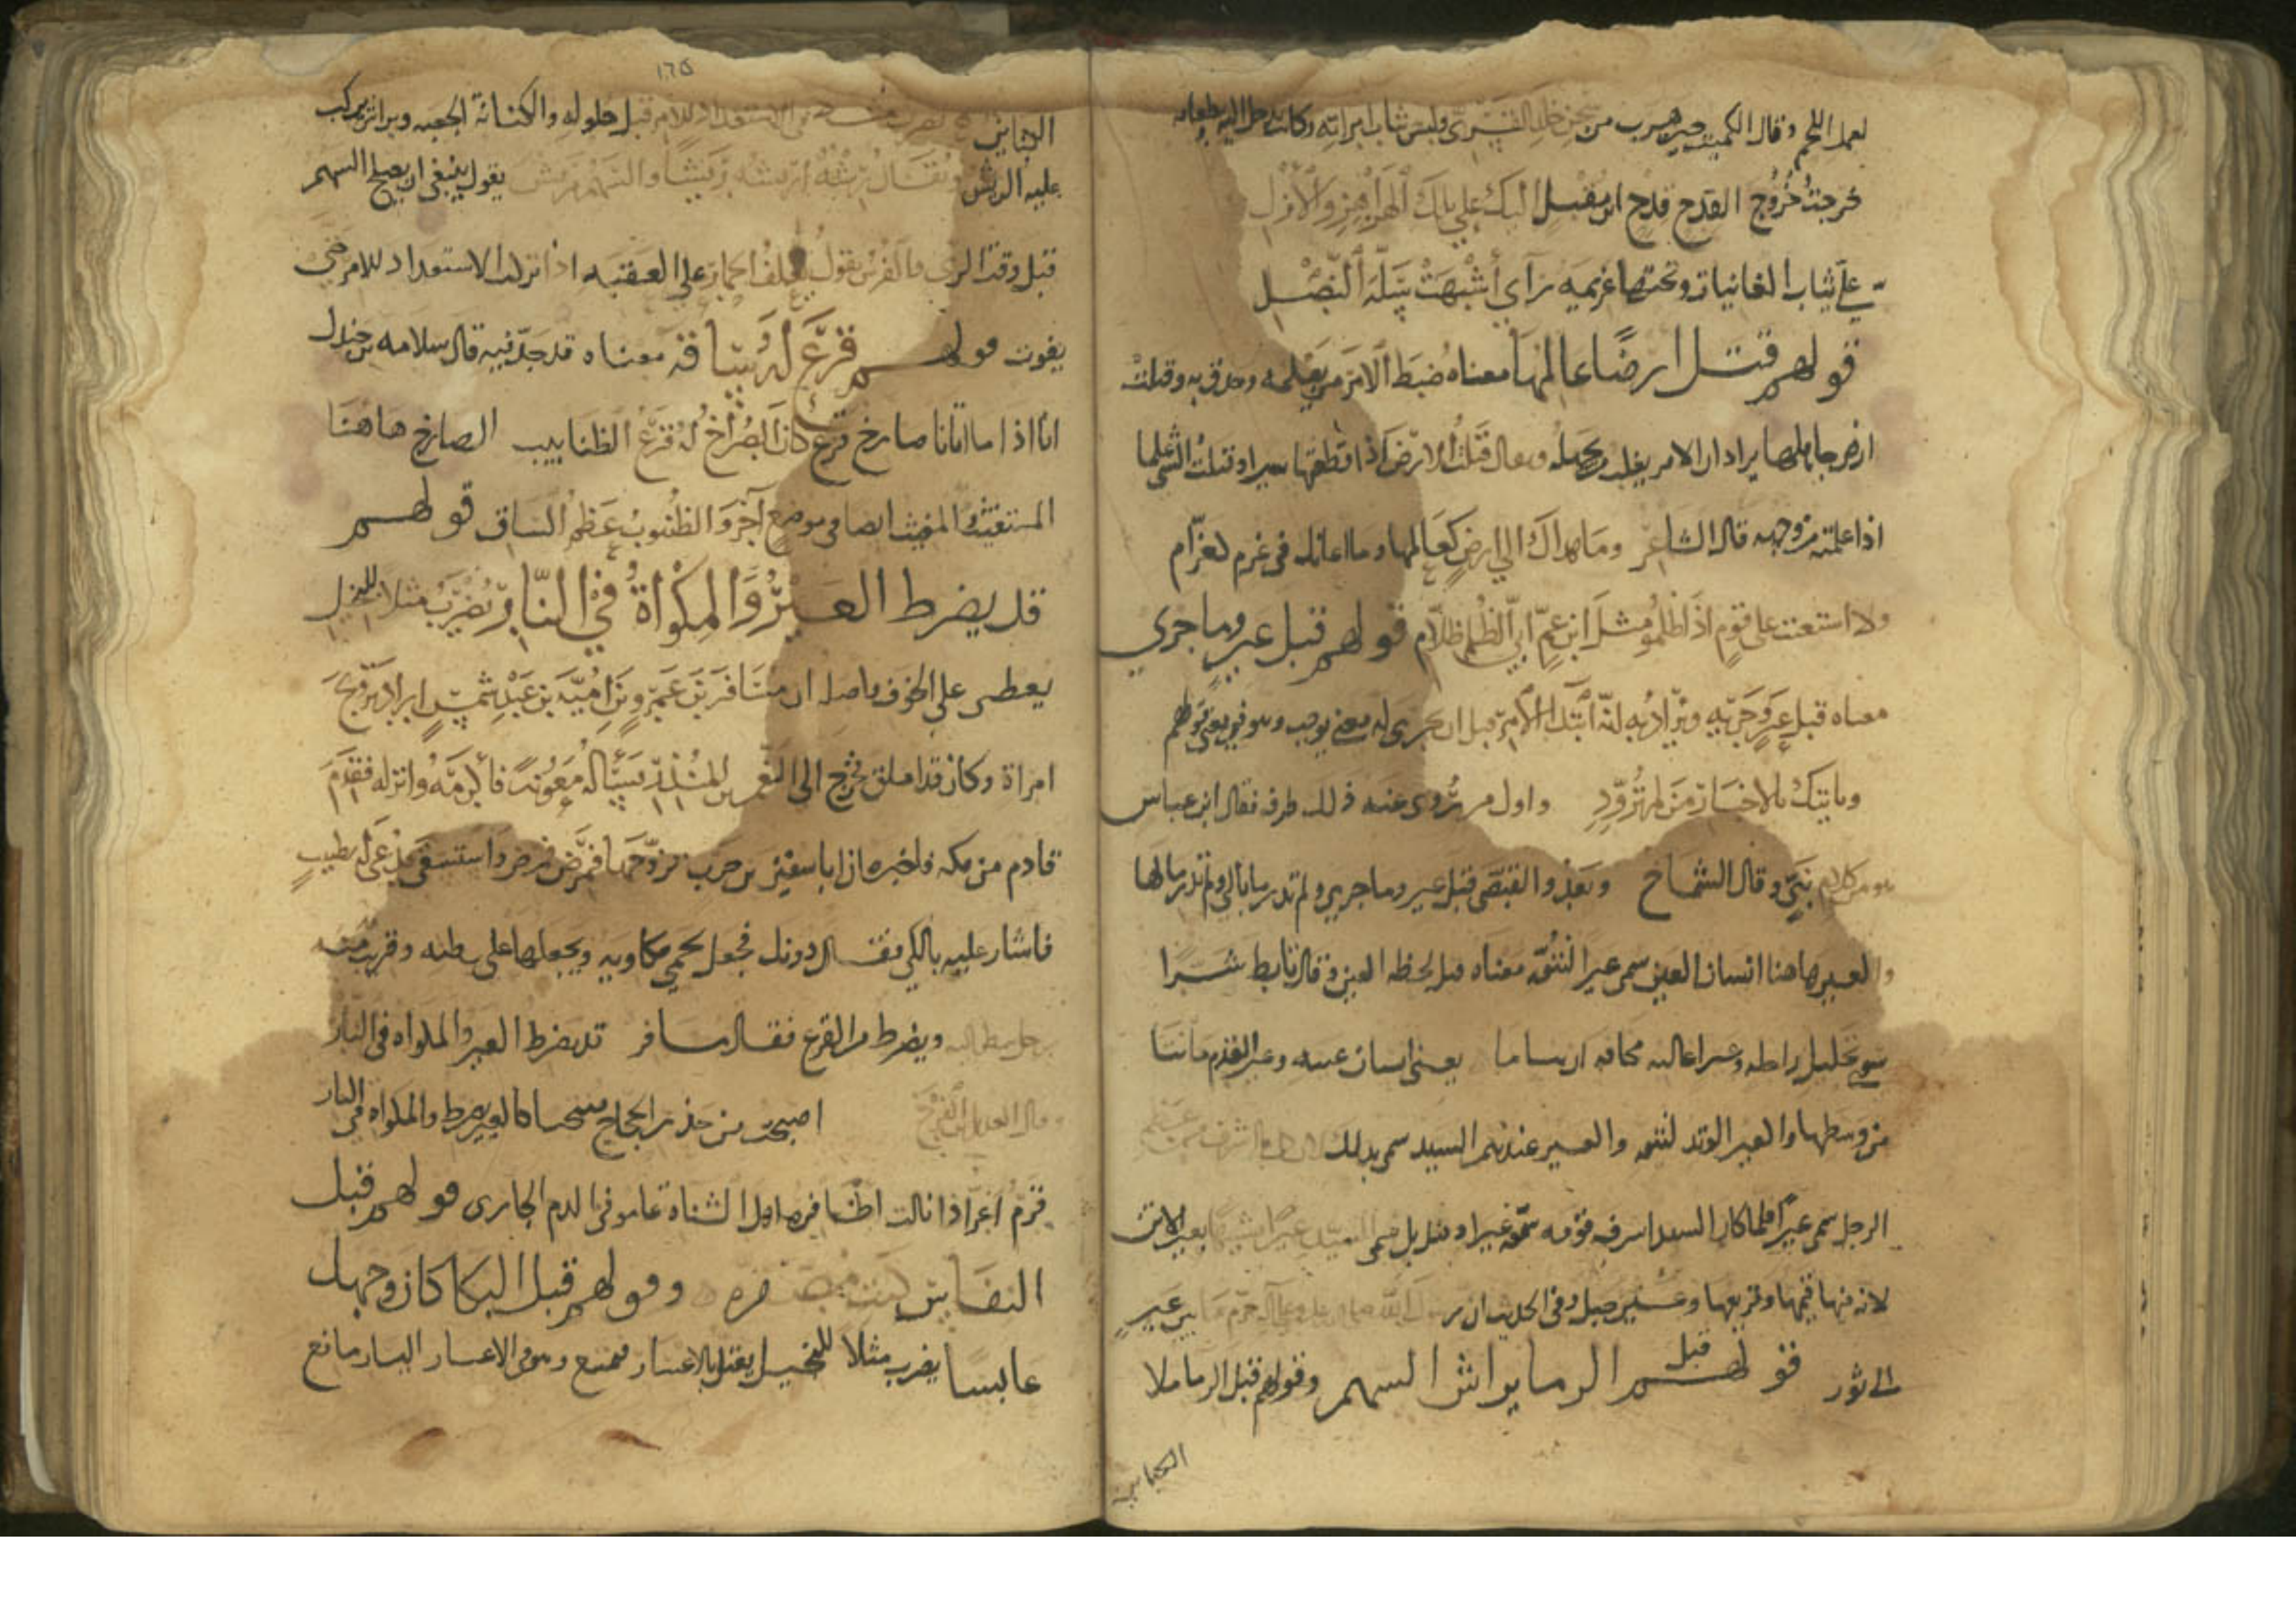 وقال الكميت حين هرب من سجن خالد القسري ولبس ثياب امراته وكانت تدخل اليه بطعامه
خرجت خروج القدح قدح ابن مقبل اليك على تلك الهزاهز والازل
علي ثياب الغانيات وتحتها عزيمة راي اشبهت سلة النصل
قولهم قتل ارضا عالمها معناه ضبط الامر من يعلمه وحذق به وقتلت
ارض جاهلها يراد ان الامر يغلب من يجهله ويقال قتلت الارض اذا قطعتها سيرا وقتلت الشي علما
اذا علمته من وجهه قال الشاعر وما هداك الى ارض كعالمها وما اعانك في غرم كغرام
ولا استعنت على قوم اذا ظلموا مثل ابن عم ابي الظلم ظلام قولهم قبل عير وما جرى
معناه قبل عير وجريه ويراد به انه ابتدا الامر قبل ان يجرى له معنى يوجب
وياتيك بالاخبار من لم تزود واول من روى عنه ذلك طرفه فقال ابن عباس
هو من كلام نبي وقال الشماخ وتعدو القبصى قبل عير وما جرى ولم تدر ما بالي ولم تدر ما بالها
والعير هاهنا انسان العين سمي عيرا لنتوه معناه قبل لحظه العين وقال تابط شرا
سوى تحليل راحله وعير اغالبه مخافه ان يناما يعنى انسان عينه وعير القدم ما نتا
من وسطها والعير الوتد لنتوه والعير عندهم السيد سمي بذلك
الرجل سمي عيرا فلما كان السيد اشرف قومه سموه عيرا وقيل بل سمي السيد عيرا تشبيها بعير الاتن
لانه قيمها وقريعها وعير جبل وفى الحديث ان رسول الله صلى الله عليه وعلى اله حرم ما بين عير
الى ثور قولهم قبل الرما يراش السهم وقولهم قبل الرما تملا
الكنائن
١٦٥
الكنائن يضرب مثلا في الاستعداد للامر قبل حلوله والكنانة الجعبه ويراش يركب
عليه الريش ويقال رشته اريشه ريشا والسهم مريش يقول ينبغي ان يصلح السهم
قبل وقت الرمي والفرس يقول يعلف الحمار على العقبه اذا ترك الاستعداد للامر حتى
يفوت قولهم قرع له ساقه معناه قد جد فيه قال سلامه بن جندل
انا اذا ما اتانا صارخ فزع كان الصراخ له قرع الظنابيب الصارخ هاهنا
المستغيث والمغيث ايضا في موضع آخر والظنبوب عظم الساق قولهم
قد يضرط العير والمكواة في النار يضرب مثلا للبخيل
يعطى على الخوف واصله ان مسافر بن عمرو بن امية بن عبد شمس اراد تزوج
امراة وكان قد املق فخرج الى النعمن بن المنذر يسأله معونة فأكرمه وانزله فقدم
قادم من مكه فاخبره ان ابا سفين بن حرب تزوجها فمرض فمرض واستسقى فدعي له بطبيب
فاشار عليه بالكي فقال دونك فجعل يحمي مكاويه ويجعلها على بطنه وقريب منه
رجل ينظر اليه ويضرط من الفزع فقال مسافر قد يضرط العير والمكواه في النار
وقال العديل بن الفرخ اصبحت من حذر الحجاج منتحبا كالعير يضرط والمكواه في النار
قرم اغر اذا نالت اظافره اهل الشناة غاصوا في الدم الجارى قولهم قبل
النفاس كنت مصفره وقولهم قبل البكا كان وجهك
عابسا يضرب مثلا للبخيل يعتل بالاعسار فيمنع وهو في الاعسار اليسار مانع